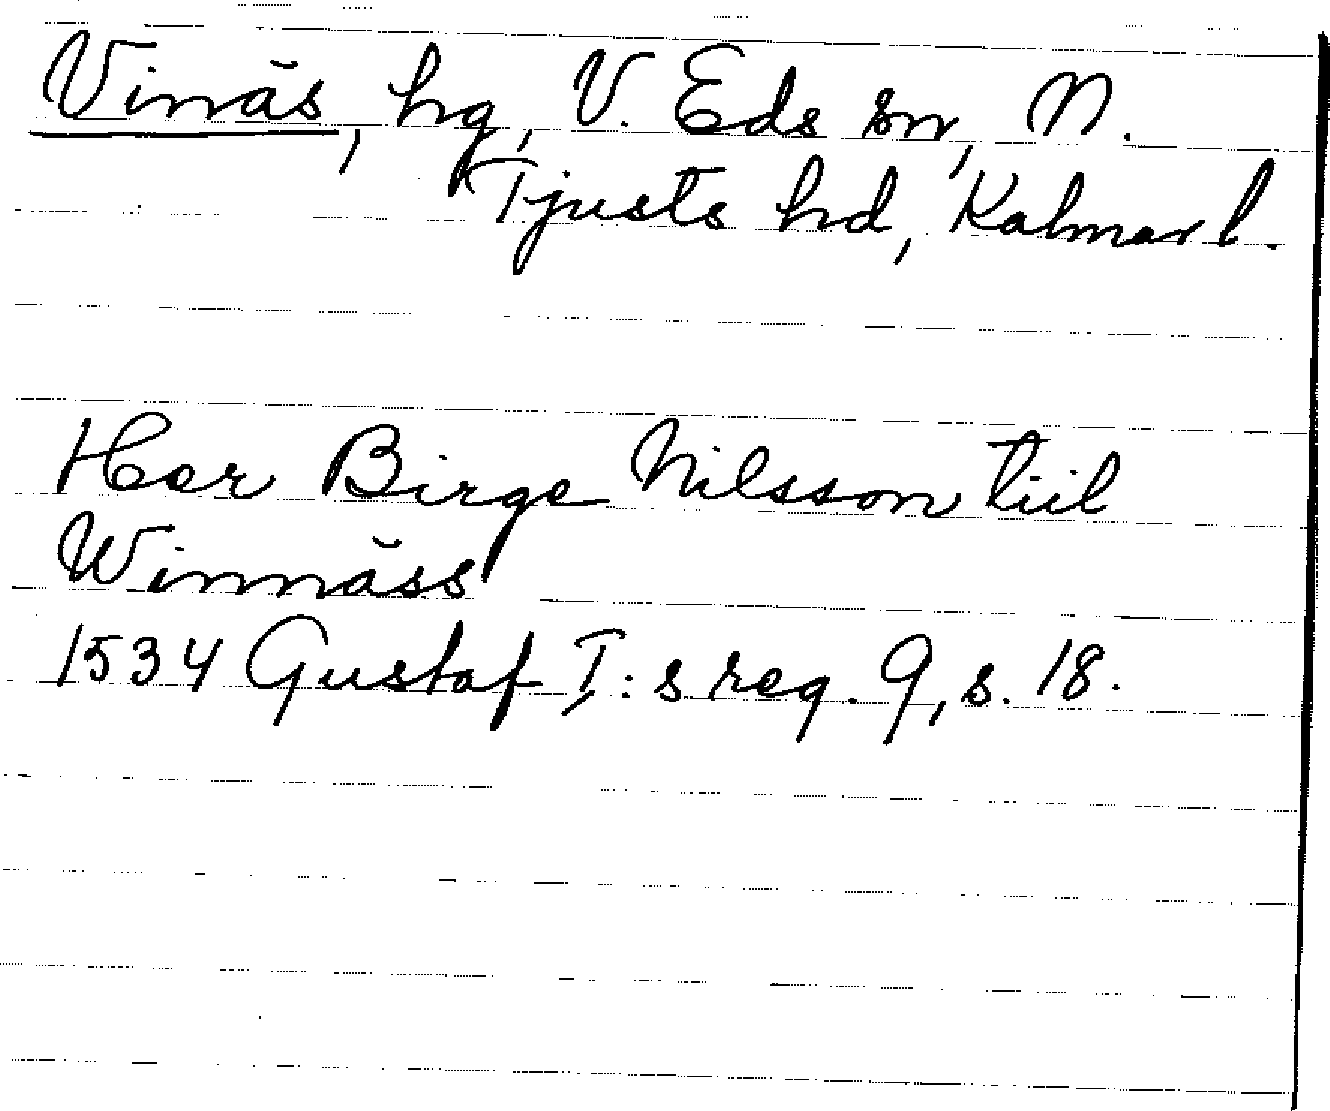 Vinäs, hg, V. Eds sn, N.
Tjusts hd, Kalmar l.
Her Birge Nilsson tiil
Winnäss
1534 Gustaf I:s reg. 9, s. 18.